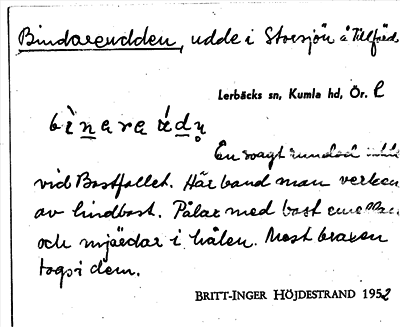 Bindareudden, udde i Storsjön å Tillfäd
Lerbäcks sn, Kumla hd, Ör. l
En svagt rundad udde
vid Bastfallet. Här band man verken
av lindbast. Pålar med bast emellan
och mjärdar i hålen. Mest braxen
togs i dem.
BRITT-INGER HÖJDESTRAND 1952